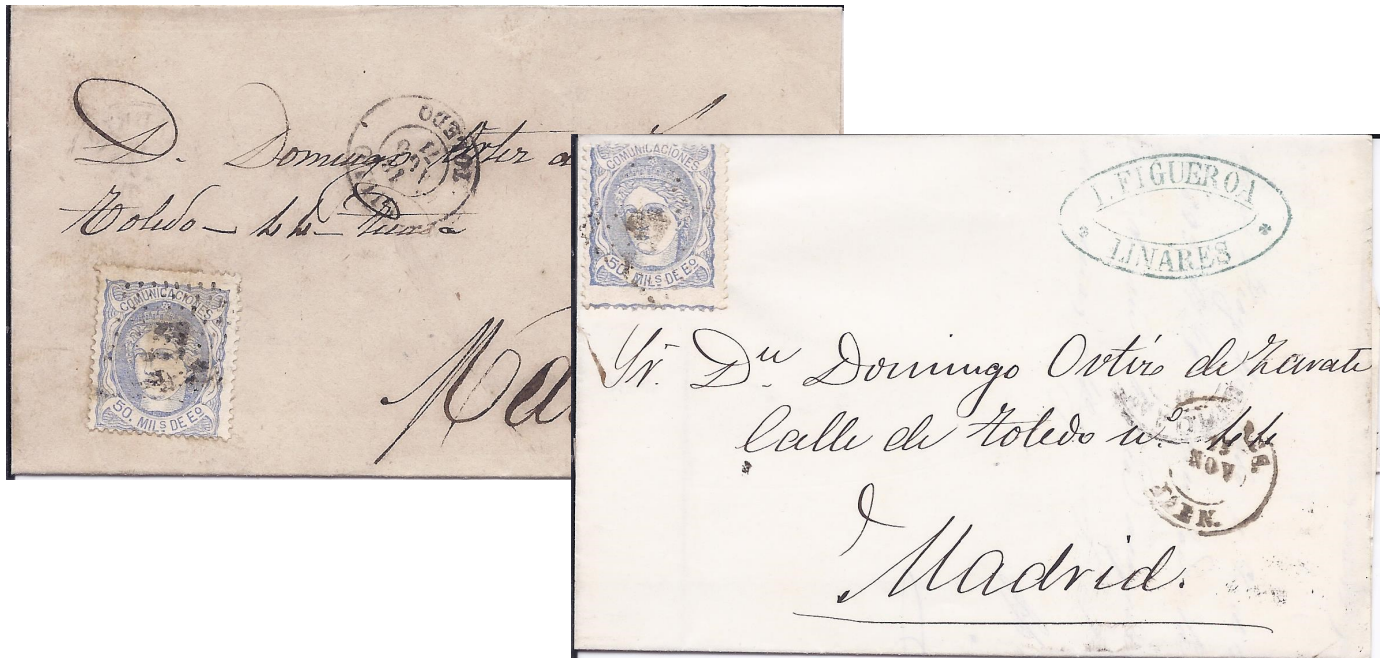 D. Domingo Ortiz
Toledo - 44 -
COMUNICACIONES
50. MILS DE Eº
COMUNICACIONES
50. MILS DE Eº
I. FIGUEROA
LINARES
Sr. Dn Domingo Ortiz de Zarate
Calle de Toledo nº 44
NOV
JAEN.
Madrid.